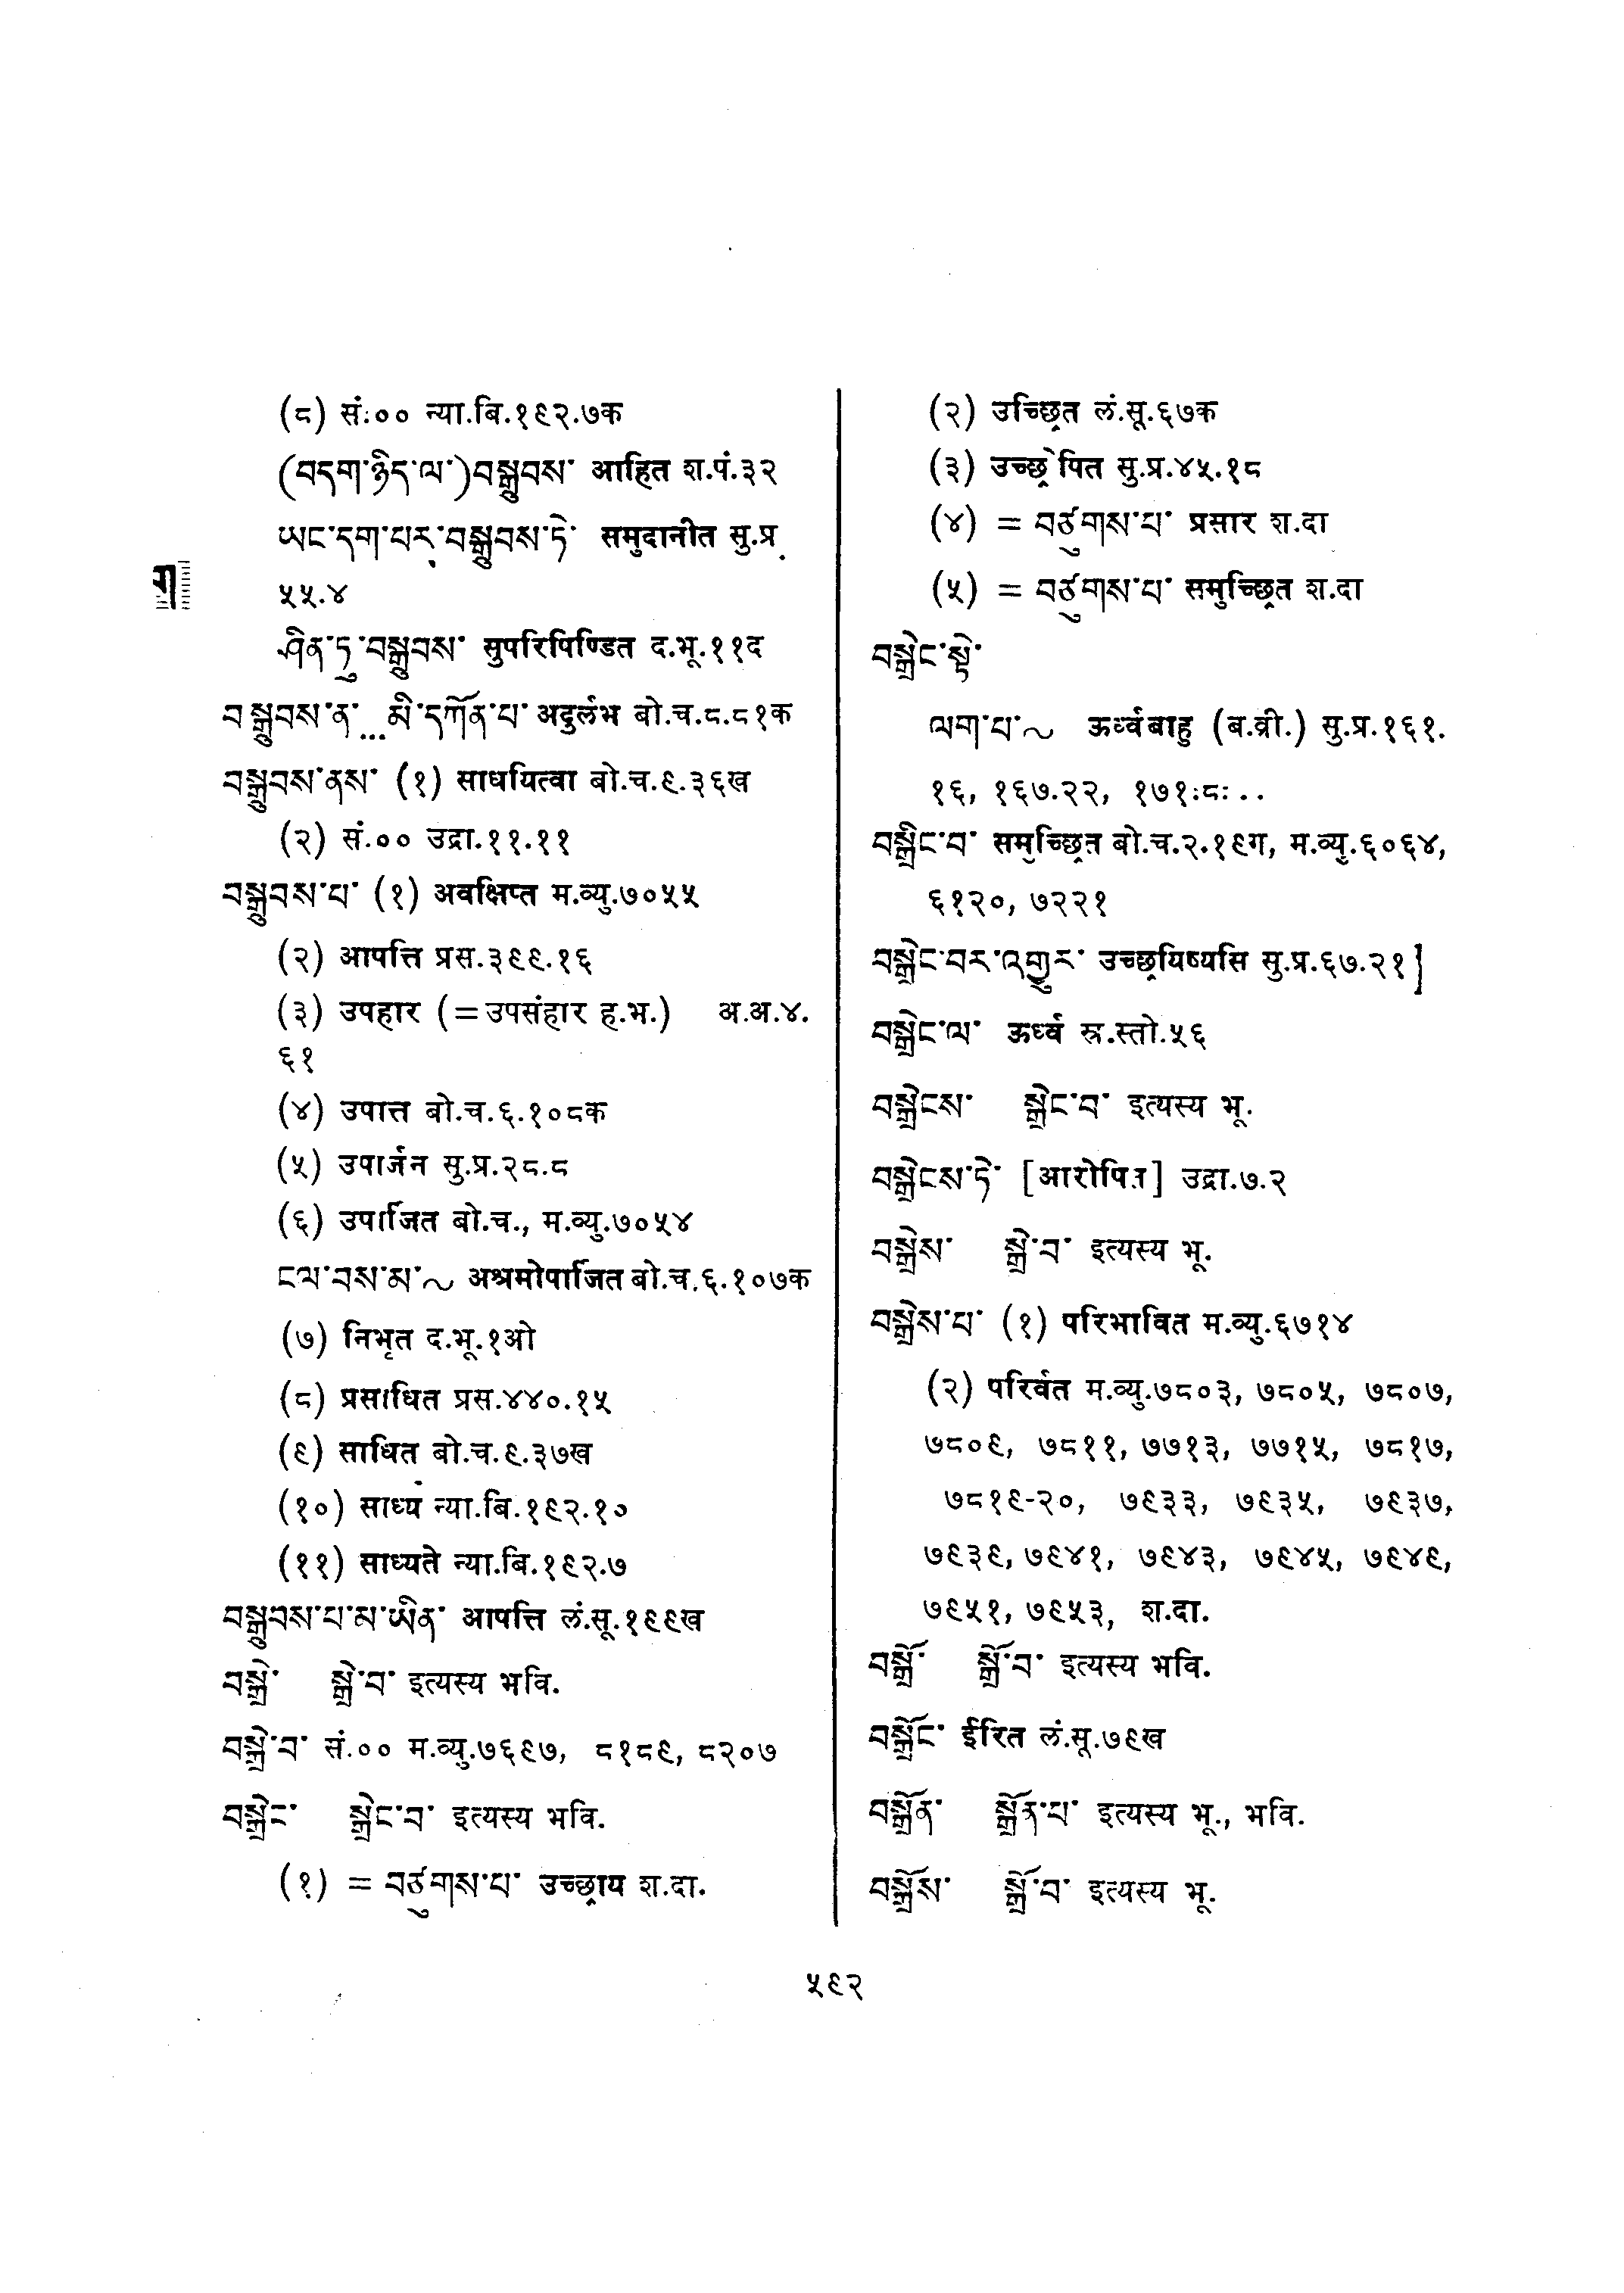 (८) सं.०० न्या.बि.१९२.७क
(བདག་ཉིད་ལ་)བསྒྲུབས་ आहित श.पं.३२
ཡང་དག་པར་བསྒྲུབས་ཏེ་ समुदानीत सु.प्र.
५५.४
ཤིན་ཏུ་བསྒྲུབས་ सुपरिपिण्डित द.भू.११द
བསྒྲུབས་ན་...མི་དཀོན་པ་ अदुर्लभ बो.च.८.८१क
བསྒྲུབས་ནས་ (१) साधयित्वा बो.च.९.३६ख
(२) सं.०० उद्रा.११.११
བསྒྲུབས་པ་ (१) अवक्षिप्त म.व्यु.७०५५
(२) आपत्ति प्रस.३९९.१६
(३) उपहार (=उपसंहार ह.भ.) अ.अ.४.
६१
(४) उपात्त बो.च.६.१०८क
(५) उपार्जन सु.प्र.२८.८
(६) उपार्जित बो.च., म.व्यु.७०५४
ངལ་བས་མ་~ अश्रमोपार्जित बो.च.६.१०७क
(७) निभृत द.भू.१ओ
(८) प्रसाधित प्रस.४४०.१५
(९) साधित बो.च.९.३७ख
(१०) साध्य न्या.बि.१९२.१०
(११) साध्यते न्या.बि.१९२.७
བསྒྲུབས་པ་མ་ཡིན་ आपत्ति लं.सू.१९९ख
བསྒྲེ་ སྒྲེ་བ་ इत्यस्य भवि.
བསྒྲེ་བ་ सं.०० म.व्यु.७६९७, ८१८९, ८२०७
བསྒྲེང་ སྒྲེང་བ་ इत्यस्य भवि.
(१) = བཙུགས་པ་ उच्छ्राय श.दा.
(२) उच्छ्रित लं.सू.६७क
(३) उच्छ्रेपित सु.प्र.४५.१८
(४) = བཙུགས་པ་ प्रसार श.दा
(५) = བཙུགས་པ་ समुच्छ्रित श.दा
བསྒྲེང་སྟེ་
ལག་པ་~ ऊर्ध्वबाहु (ब.व्री.) सु.प्र.१६१.
१६, १६७.२२, १७१.८...
བསྒྲེང་བ་ समुच्छ्रित बो.च.२.१९ग, म.व्यु.६०६४,
६१२०, ७२२१
བསྒྲེང་བར་འགྱུར་ उच्छ्रयिष्यसि सु.प्र.६७.२१]
བསྒྲེང་ལ་ ऊर्ध्व स्र.स्तो.५६
བསྒྲེངས་ སྒྲེང་བ་ इत्यस्य भू.
བསྒྲེངས་ཏེ་ [आरोपित] उद्रा.७.२
བསྒྲེས་ སྒྲེ་བ་ इत्यस्य भू.
བསྒྲེས་པ་ (१) परिभावित म.व्यु.६७१४
(२) परिवर्त म.व्यु.७८०३, ७८०५, ७८०७,
७८०९, ७८११, ७७१३, ७७१५, ७८१७,
७८१९-२०, ७९३३, ७९३५, ७९३७,
७९३९, ७९४१, ७९४३, ७९४५, ७९४९,
७९५१, ७९५३, श.दा.
བསྒྲོ་ སྒྲོ་བ་ इत्यस्य भवि.
བསྒྲོང་ ईरित लं.सू.७९ख
བསྒྲོན་ སྒྲོན་པ་ इत्यस्य भू., भवि.
བསྒྲོས་ སྒྲོ་བ་ इत्यस्य भू.
५९२